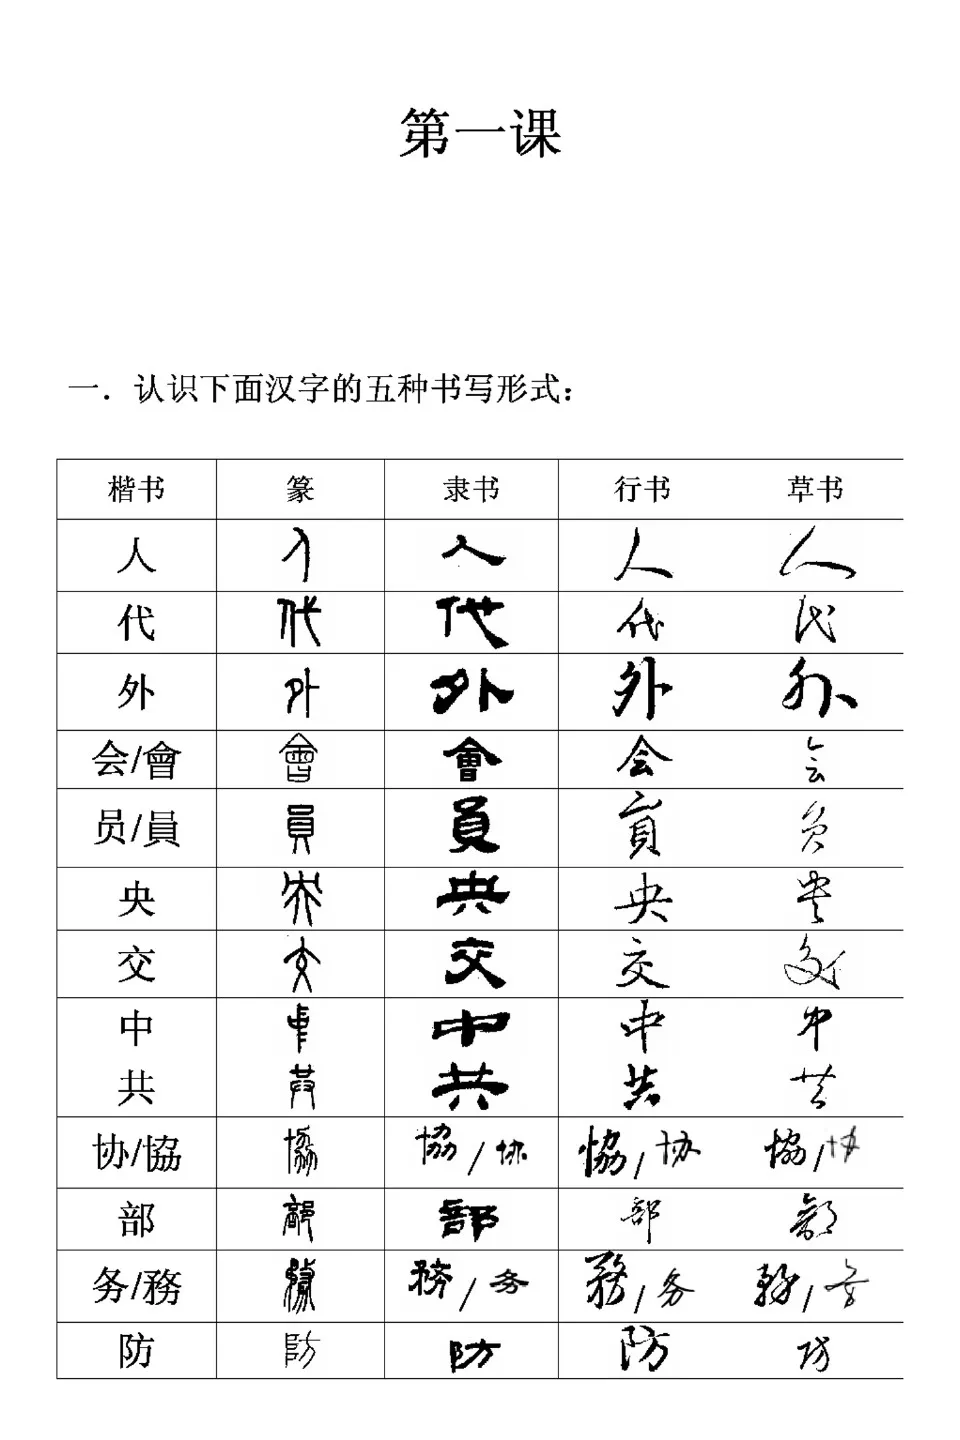 第一课
一．认识下面汉字的五种书写形式：
楷书 篆 隶书 行书 草书
人 人 人 人 人
代 代 代 代 代
外 外 外 外 外
会/會 會 會 会 会
员/員 員 員 員 员
央 央 央 央 央
交 交 交 交 交
中 中 中 中 中
共 共 共 共 共
协/協 協 協/协 協/协 協/协
部 部 部 部 部
务/務 務 務/务 務/务 務/务
防 防 防 防 防